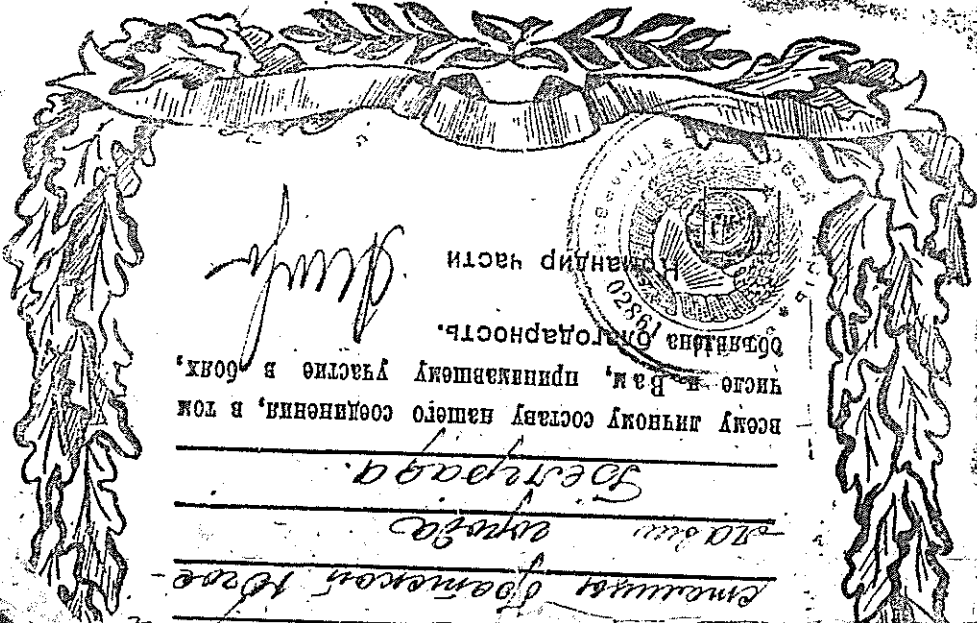 столицы братской Юго-
славии города
Белграда.
всему личному составу нашего соединения, в том
числе и Вам, принимавшему участие в боях,
объявлена благодарность.
Командир части